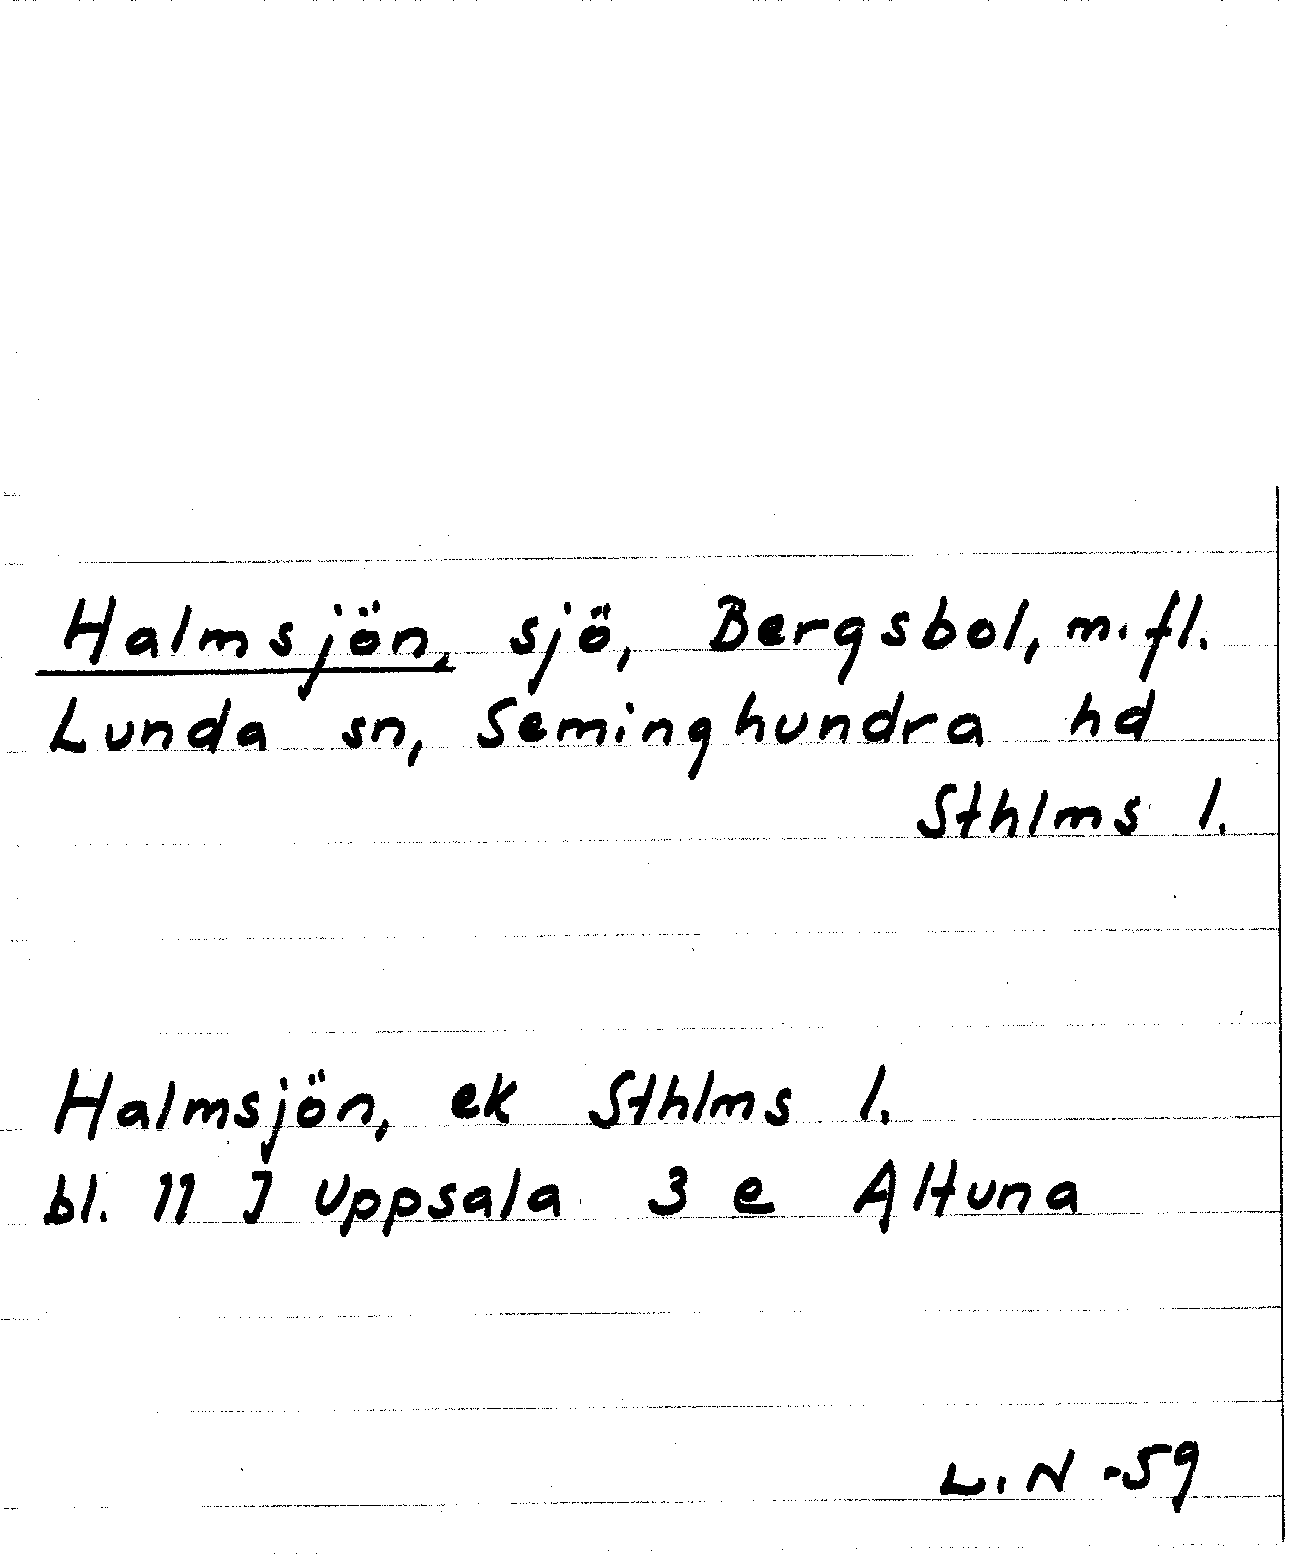 Halmsjön, sjö, Bergsbol, m.fl.
Lunda sn, Seminghundra hd
Sthlms l.
Halmsjön, ek Sthlms l.
bl. 11 J Uppsala 3 e Altuna
L.N -59